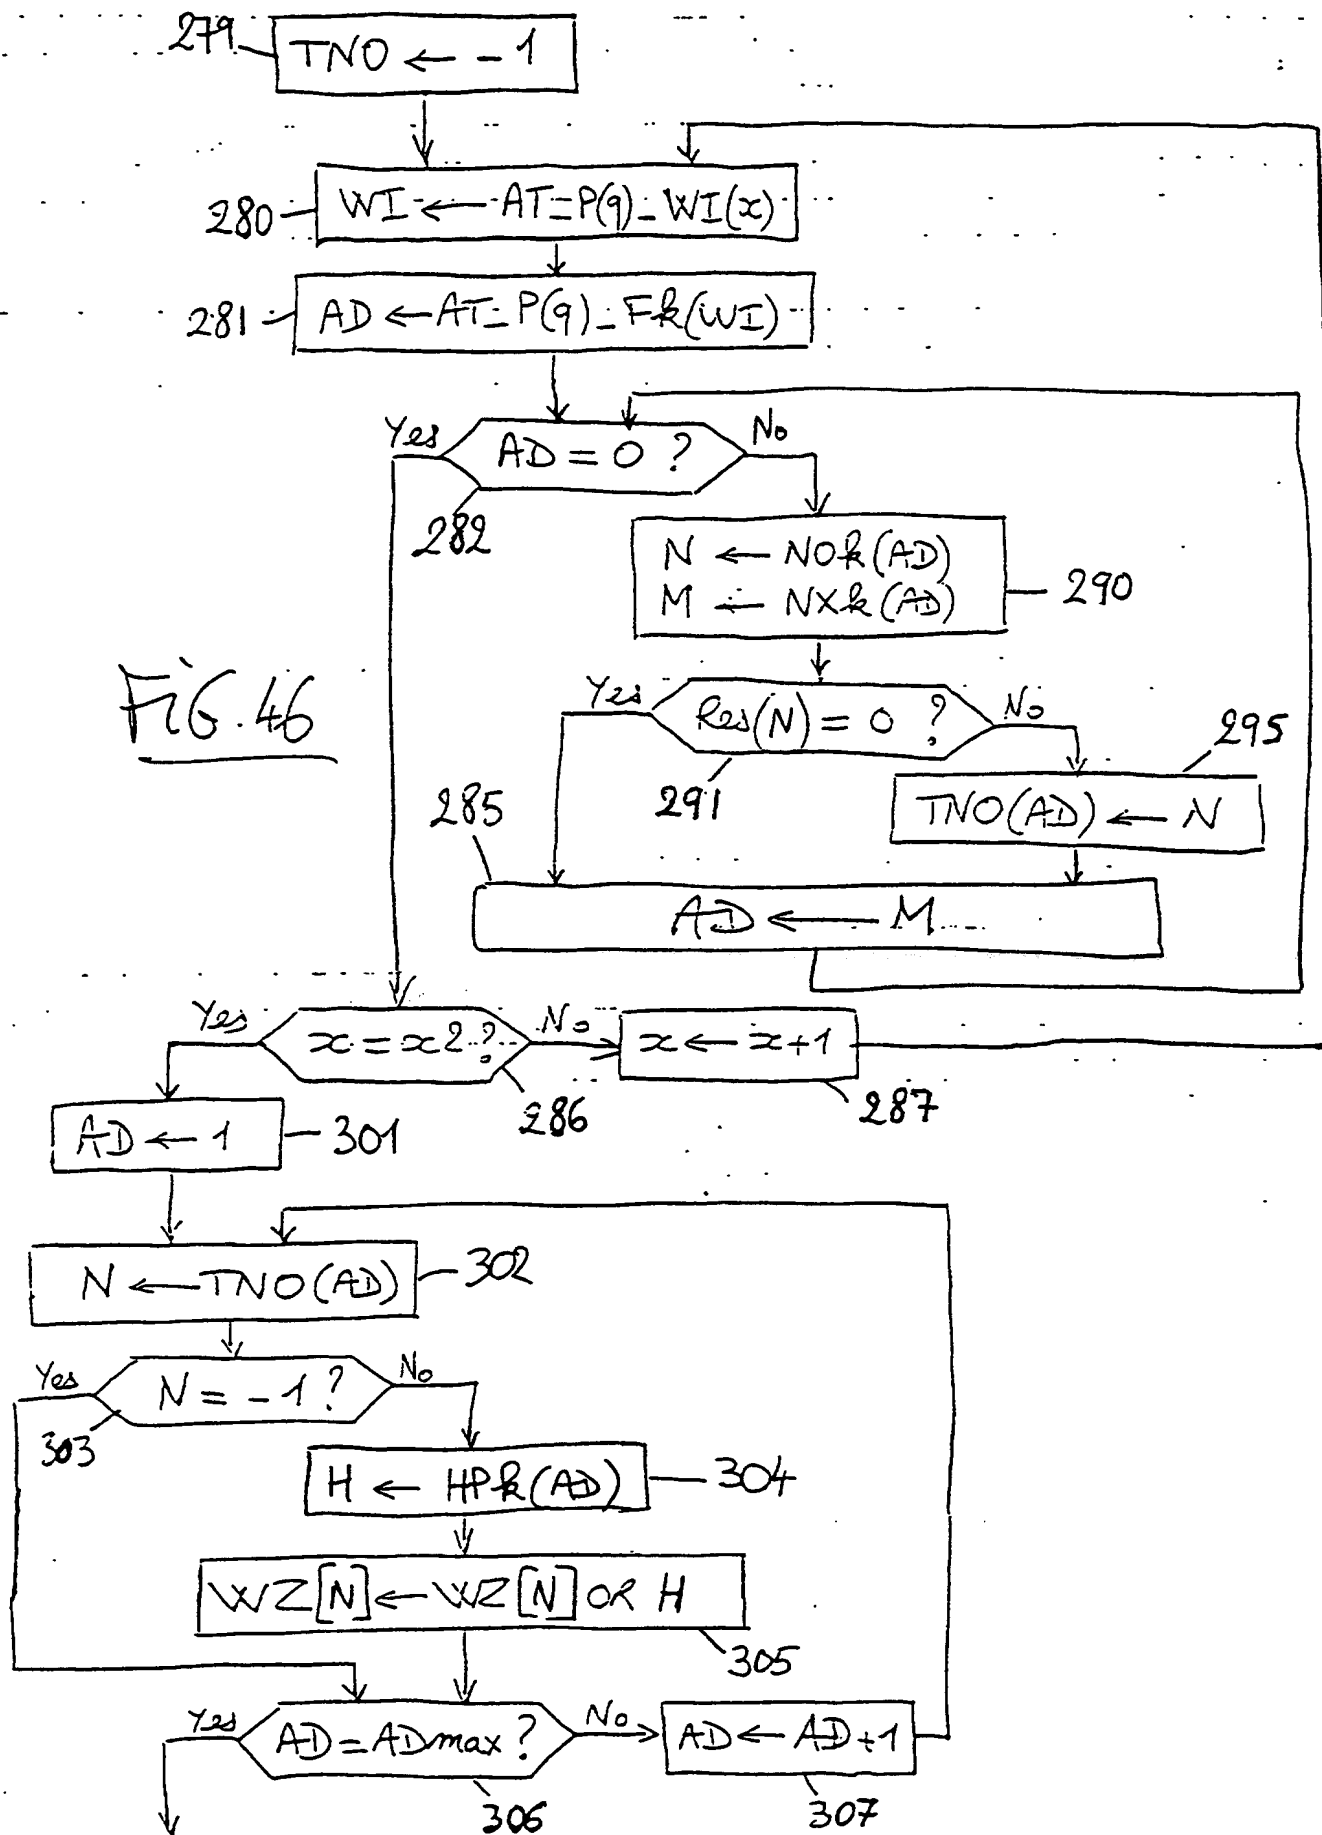 279
TNO ← -1
280
WI ← AT_P(q)_WI(x)
281
AD ← AT_P(q)_Fk(WI)
Yes
AD = 0 ?
No
282
N ← NOk(AD)
M ← NXk(AD)
290
FiG. 46
Yes
Res(N) = 0 ?
No
295
291
285
TNO(AD) ← N
AD ← M
Yes
x = x2 ?
No
x ← x+1
286
287
AD ← 1
301
N ← TNO(AD)
302
Yes
N = -1 ?
No
303
H ← HPk(AD)
304
WZ[N] ← WZ[N] OR H
305
Yes
AD = ADmax ?
No
AD ← AD+1
306
307